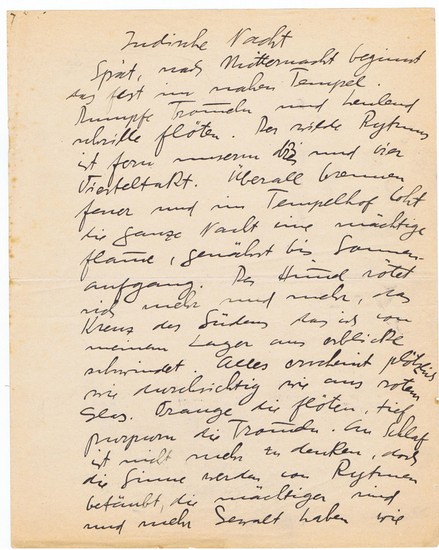 Indische Nacht
Spät, nach Mitternacht beginnt
das fest im nahen Tempel.
Dumpfe Trommeln und heulend
schrille flöten. Der wilde Rytmus
ist fern unserm und vier
Vierteltakt. Überall brennen
feuer und im Tempelhof loht
die ganze Nacht eine mächtige
flamme, genährt bis Sonnen-
aufgang. Der Himmel rötet
sich mehr und mehr, das
Kreuz des Südens das ich von
meinem Lager aus erblicke
schwindet. Alles erscheint plötzlich
wie durchsichtig wie aus rotem
Glas. Orange die flöten, tief
purpurn die Trommeln. An Schlaf
ist nicht mehr zu denken, doch
die Sinne werden von Rytmen
betäubt, die mächtiger sind
und mehr Gewalt haben wie